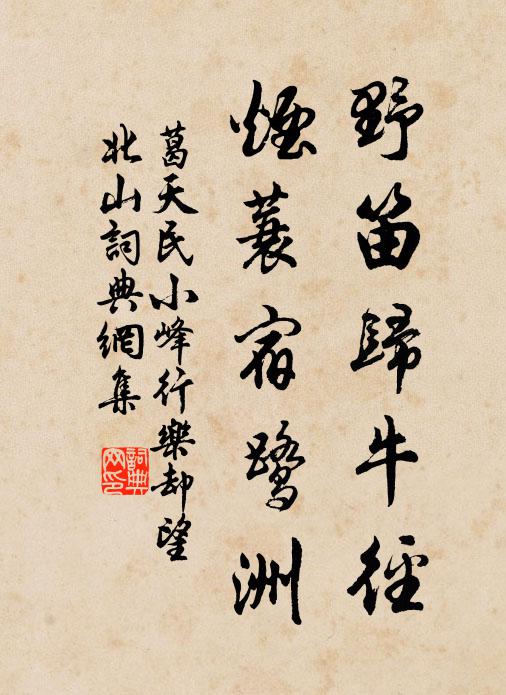 野笛歸牛徑
煙蓑宿鷺洲
葛天民小峰行樂却望
北山詞典網集
詞典網印